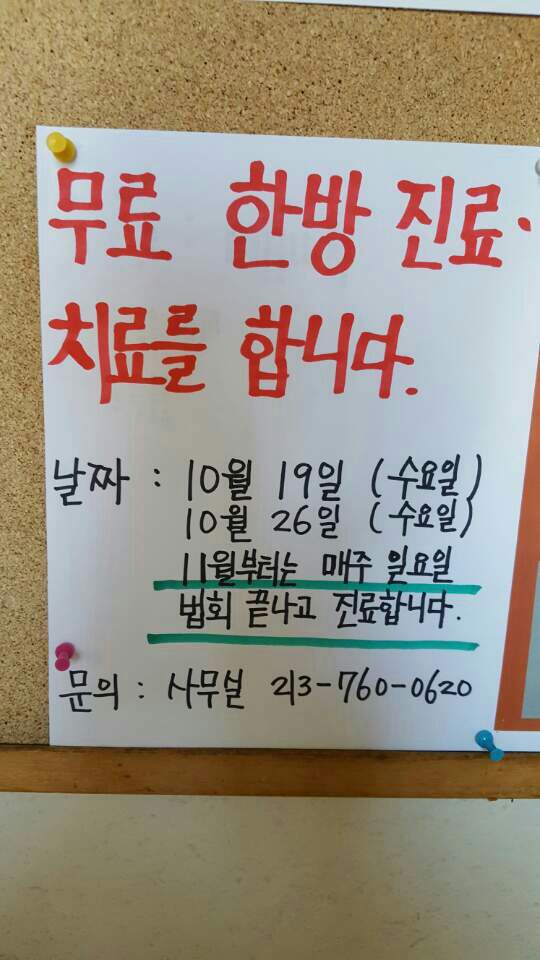 무료 한방 진료·
치료를 합니다.
날짜 : 10월 19일 (수요일)
10월 26일 (수요일)
11월부터는 매주 일요일
법회 끝나고 진료합니다.
문의 : 사무실 213-760-0620